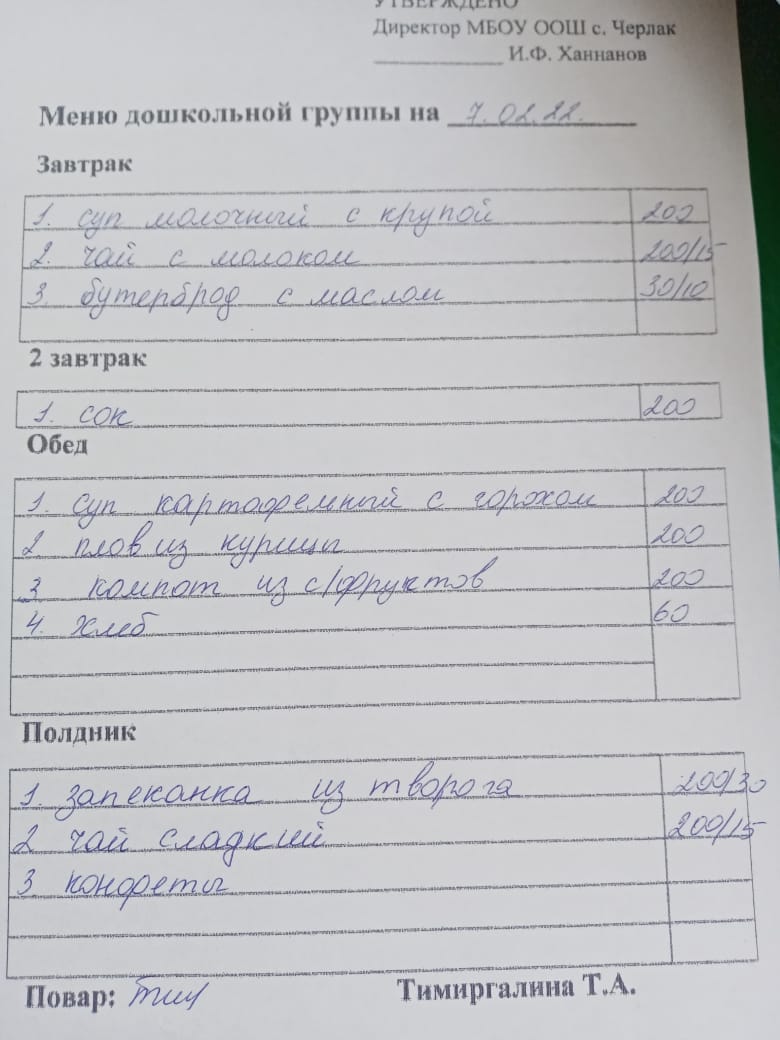 УТВЕРЖДЕНО
Директор МБОУ ООШ с. Черлак
И.Ф. Ханнанов
Меню дошкольной группы на 7.02.22.
Завтрак
1. суп молочный с крупой 200
2. чай с молоком 200/15
3. бутерброд с маслом 30/10
2 завтрак
1. сок 200
Обед
1. суп картофельный с горохом 200
2. плов из курицы 200
3 компот из с/фруктов 200
4. хлеб 60
Полдник
1. запеканка из творога 200/30
2 чай сладкий 200/15
3 конфеты
Повар: Тимиргалина Т.А.